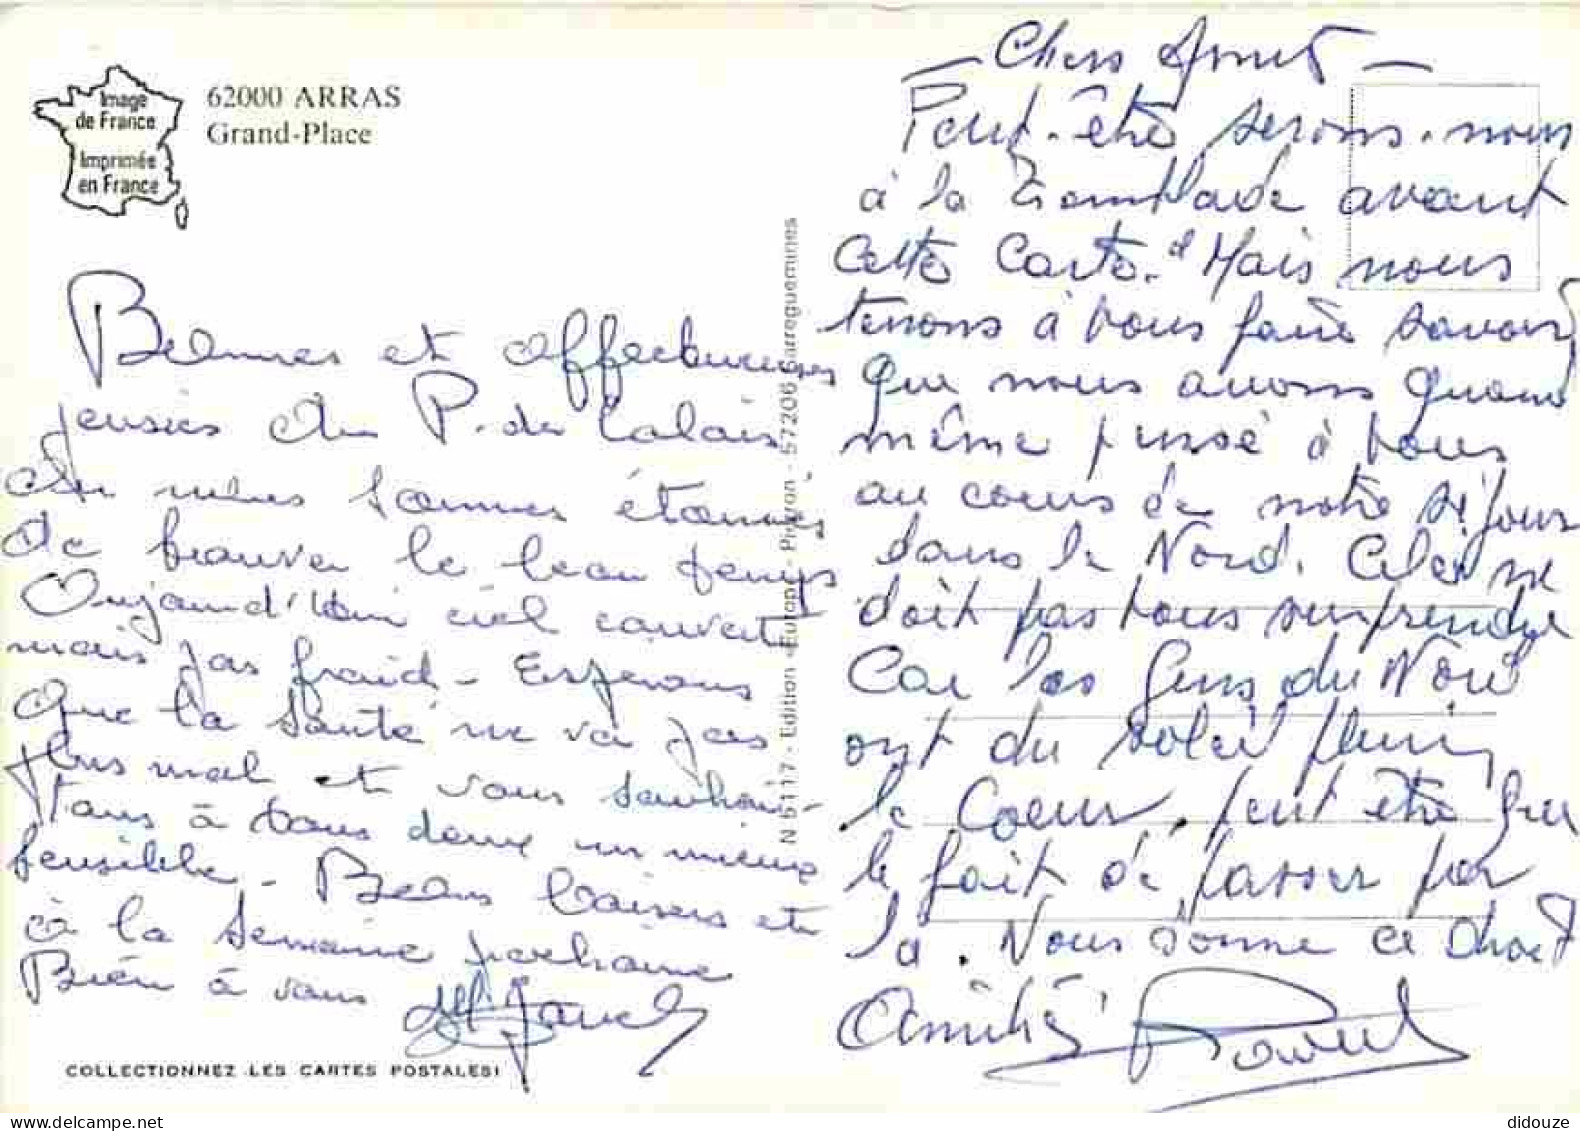 Image
de France
Imprimée
en France
62000 ARRAS
Grand-Place
Bonnes et affectueuses
pensées du P. de Calais
sommes étonnés
de trouver le beau temps
Aujourd'hui ciel couvert
mais pas froid - Espérons
que la santé ne va pas
plus mal et vous souhai-
tons à tous deux un mieux
sensible - Bons baisers et
à la semaine prochaine
Bien à vous
COLLECTIONNEZ LES CARTES POSTALES!
N 5117 - Edition «Europ» - Pierron - 57206 Sarreguemines
- Chers Amis -
Peut-être serons-nous
à la Tremblade avant
cette carte. Mais nous
tenons à vous faire savoir
que nous avons quand
même pensé à vous
au cours de notre séjour
dans le Nord. Cela ne
doit pas vous surprendre
Car les gens du Nord
ont du soleil plein
le Coeur, peut être que
le fait de passer par
là. Nous donne ce droit
Amitiés
didouze